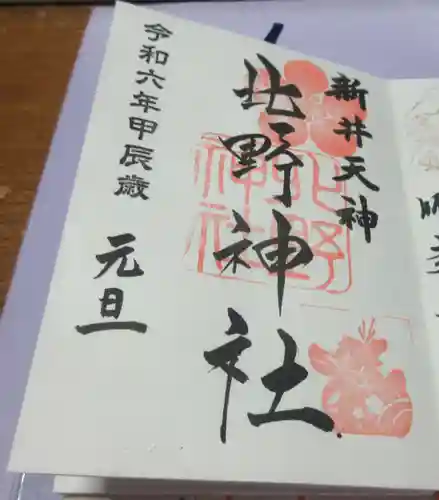 新井天神
北野神社
令和六年甲辰歳
元旦
北野
神社